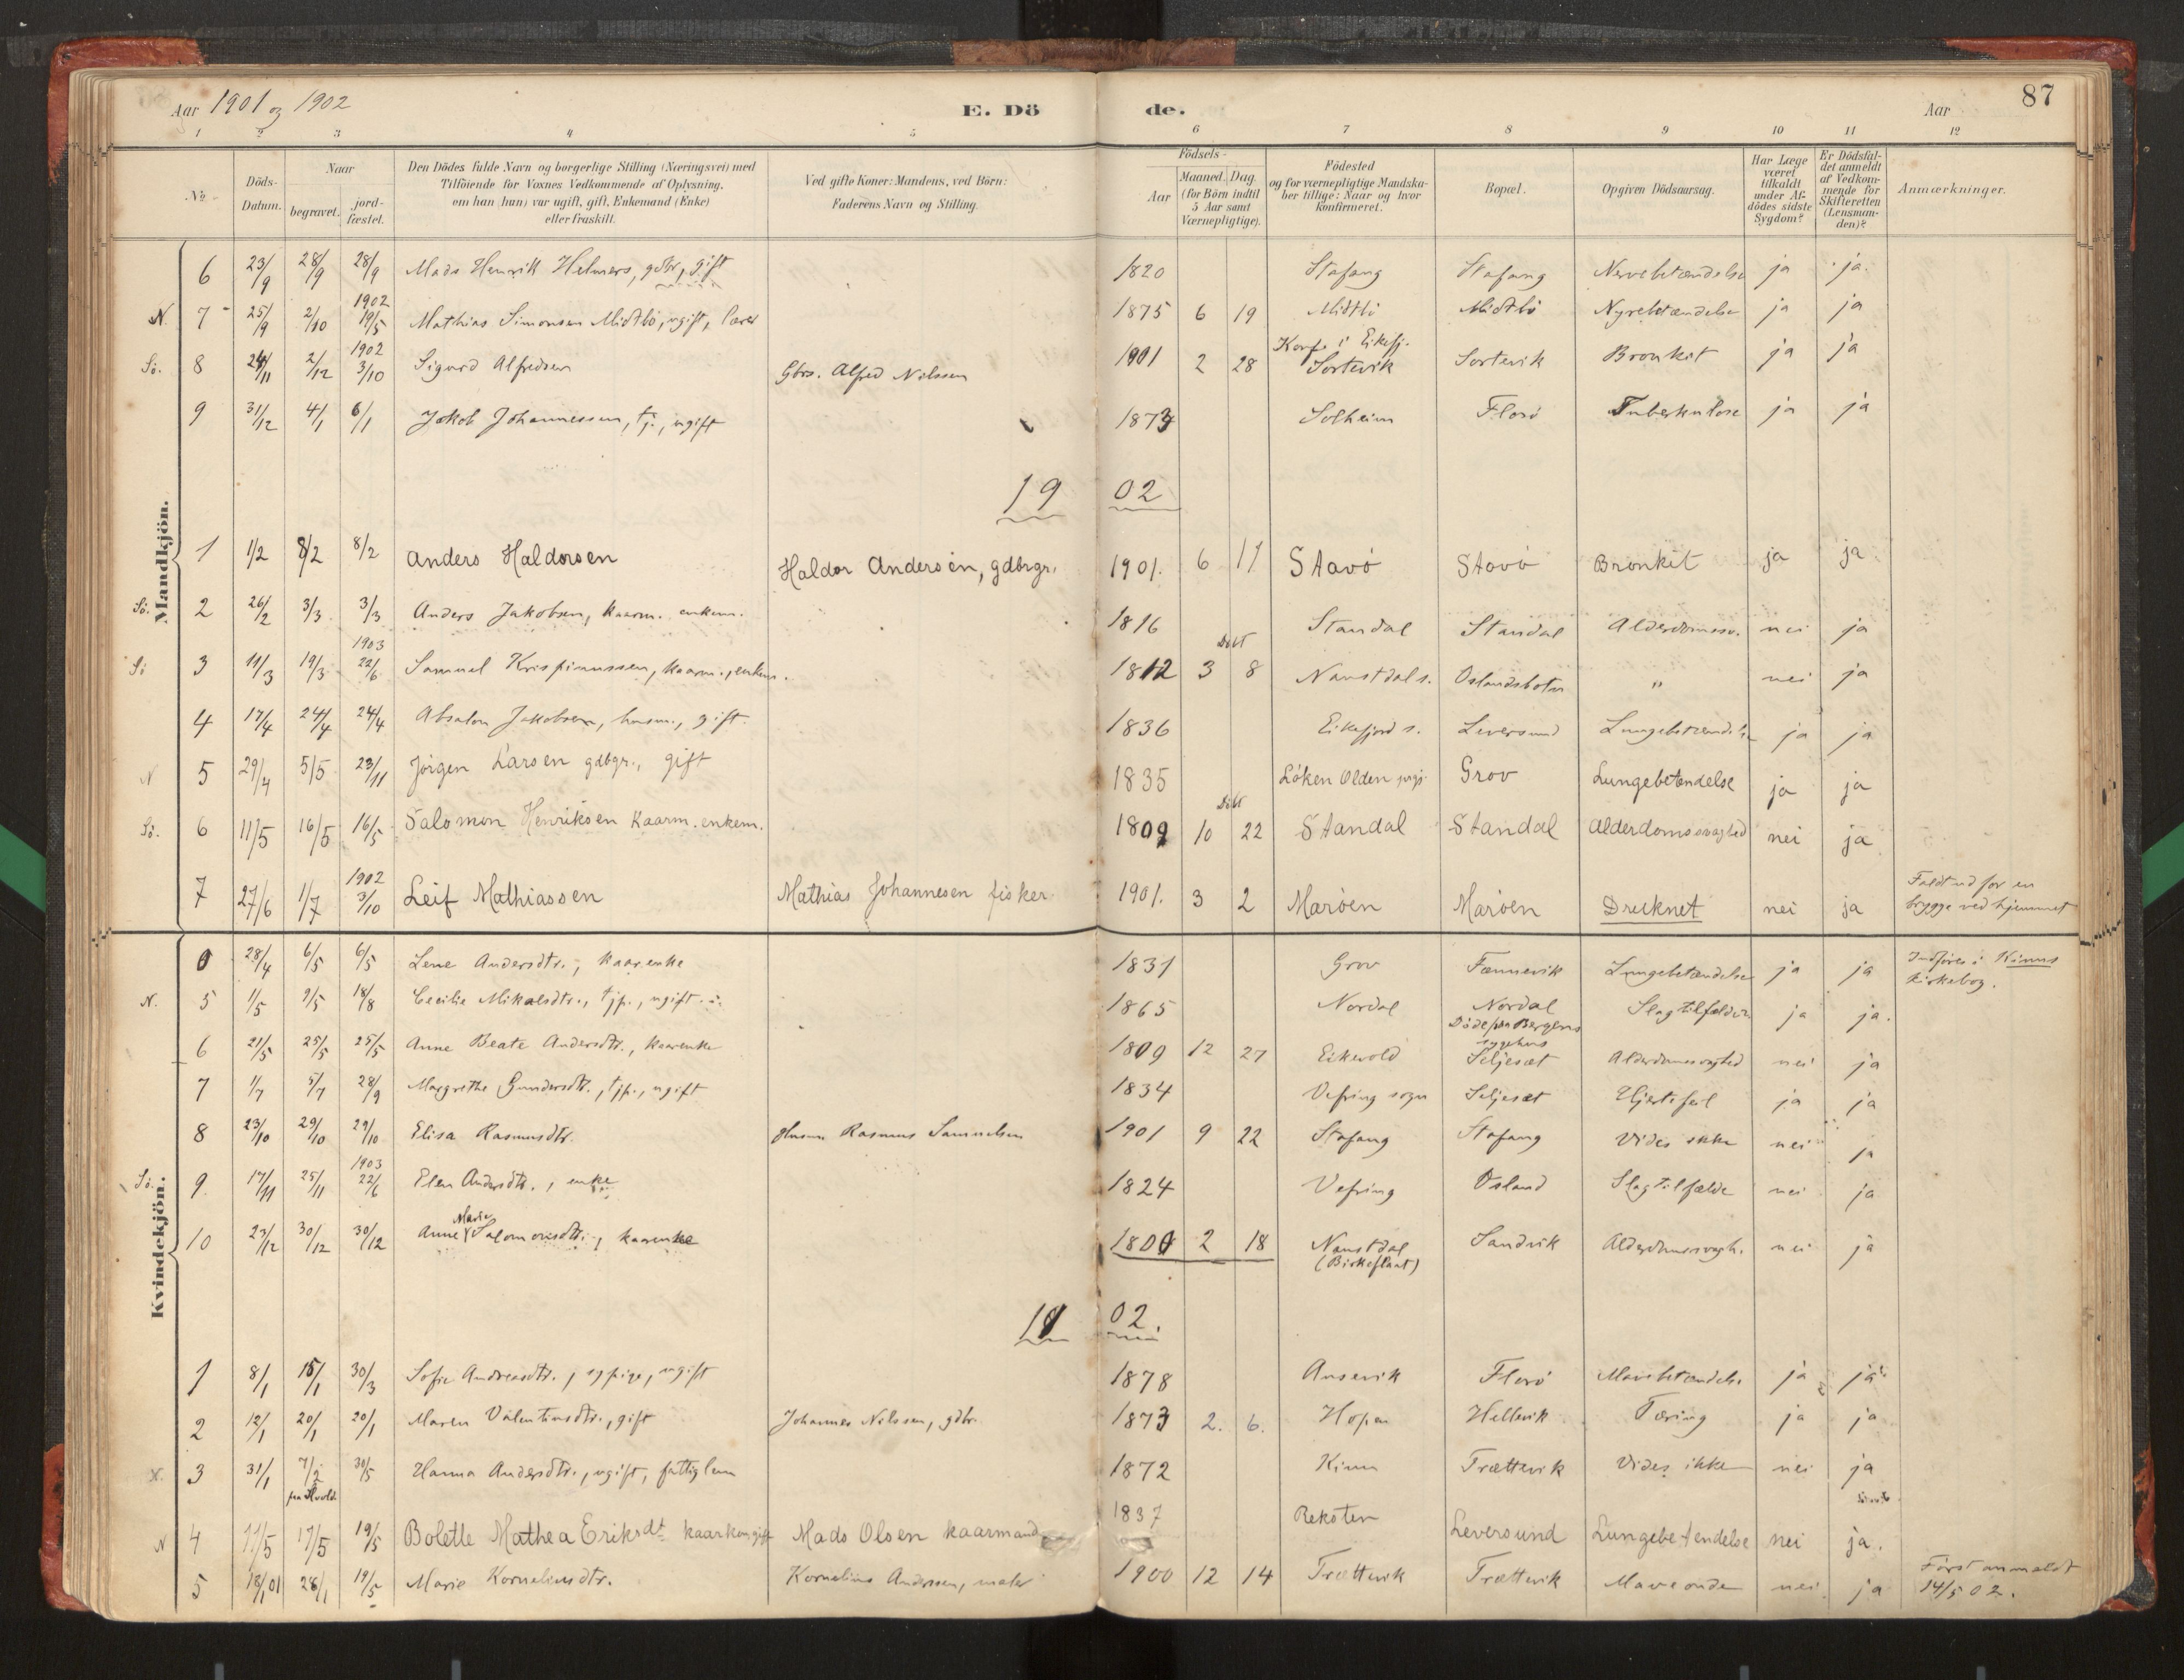 Aar 1901 og 1902 E. Dö de. Aar 87
1 2 3 4 5 6 7 8 9 10 11 12
No. Döds-Datum. Naar begravet. jord-fæstet. Den Dödes fulde Navn og borgerlige Stilling (Næringsvei) med Tilföiende for Voxnes Vedkommende af Oplysning, om han (hun) var ugift, gift, Enkemand (Enke) eller fraskilt. Ved gifte Koner: Mandens, ved Börn: Faderens Navn og Stilling. Födsels- Aar Maaned. Dag. (for Börn indtil 5 Aar samt Værnepligtige). Födested og for værnepligtige Mandskaber tillige: Naar og hvor konfirmeret. Bopæl. Opgiven Dödsaarsag. Har Læge været tilkaldt under Afdödes sidste Sygdom? Er Dödsfaldet anmeldt af Vedkommende for Skifteretten (Lensmanden)? Anmærkninger.
Mandkjön.
6 23/9 28/9 28/9 Mads Henrik Helmers, gdbr, gift 1820 Stafang Stafang Nervebetændelse ja ja.
N. 7 25/9 2/10 1902 19/5 Mathias Simonsen Midtbö, ugift, lærer 1875 6 19 Midtbö Midtbö Nyrebetændelse ja ja
Konf. i Eikefj.
Sö. 8 24/11 2/12 1902 3/10 Sigurd Alfredsen Gbrs. Alfred Nilssen 1901 2 28 Sortevik Sortevik Bronkit ja ja
9 31/12 4/1 6/1 Jakob Johannessen, tj., ugift 1873 Solheim Florö Tuberkulose ja ja
19 02
1 1/2 8/2 8/2 Anders Haldorsen Haldor Andersen, gdbrgr. 1901. 6 11 Stavö Stavö Bronkit ja ja
Sö. 2 26/2 3/3 3/3 Anders Jakobsen, kaarm. enkem. 1816 Standal Standal Alderdomssv. nei ja
Sö 3 11/3 19/3 1903 22/6 Samuel Krispinussen, kaarm., enkem. 1812 Döbt 3 8 Naustdal s. Oslandsbotn " nei ja
4 17/4 24/4 24/4 Absalon Jakobsen, husm., gift 1836 Eikefjord s. Leversund Lungebetændelse ja ja
N 5 29/4 5/5 23/11 Jörgen Larsen gdbgr., gift 1835 Löken Olden prgj. Grov Lungebetændelse ja ja
Sö. 6 11/5 16/5 16/5 Salomon Henriksen Kaarm. enkem. 1809 Döbt 10 22 Standal Standal Alderdomssvaghed nei ja
7 27/6 1/7 1902 3/10 Leif Mathiassen Mathias Johannesen fisker 1901. 3 2 Maröen Maröen Drucknet nei ja Faldt ud for en brygge ved hjemmet
Kvindekjön.
0 28/4 6/5 6/5 Lene Andersdtr., kaarenke 1831 Grov Fænnevik Lungebetændelse ja ja Indföres i Kinns kirkebog.
N. 5 1/5 9/5 18/8 Cecilie Mikalsdtr., tjp., ugift 1865 Nordal Nordal Döde paa Bergens sygehus Slagtilfælde ja ja.
6 21/5 25/5 25/5 Anne Beate Andersdtr., kaarenke 1809 12 27 Eikevold Seljesæt Alderdomssvaghed nei ja
7 1/7 5/7 28/9 Margrethe Gundersdtr., tjp., ugift 1834 Vefring sogn Seljesæt Hjertefeil ja ja
8 23/10 29/10 29/10 Elisa Rasmusdtr. Husm Rasmus Samuelsen 1901 9 22 Stafang Stafang Vides ikke nei ja
Sö. 9 17/11 25/11 1903 22/6 Elen Andersdtr., enke 1824 Vefring Osland Slagtilfælde nei ja
10 23/12 30/12 30/12 Anne Marie Salomonsdtr., kaarenke 1800 2 18 Naustdal (Birkeflaat) Sandvik Alderdomssvagh. nei ja
19 02.
1 8/1 15/1 30/3 Sofie Andreasdtr., sypige, ugift 1878 Ausevik Florö Mavebetændelse ja ja
2 12/1 20/1 20/1 Maren Valentinsdtr., gift Johannes Nilssen, gdbr. 1873 2. 6. Hopen Hellevik Tæring ja ja
3 31/1 7/2 30/5 Hanna Andersdtr., ugift, fattiglem 1872 Kinn Trættevik Vides ikke nei ja
N 4 11/5 17/5 19/5 Bolette Mathea Eriksdt. kaarkone gift Mads Olsen kaarmand 1837 Reksten Leversund Lungebetændelse nei ja.
5 18/1 01 28/1 19/5 Marie Korneliusdtr. Kornelius Anderssen, maler 1900 12 14 Trættevik Trættevik Maveonde nei ja Först anmeldt 14/5 02.